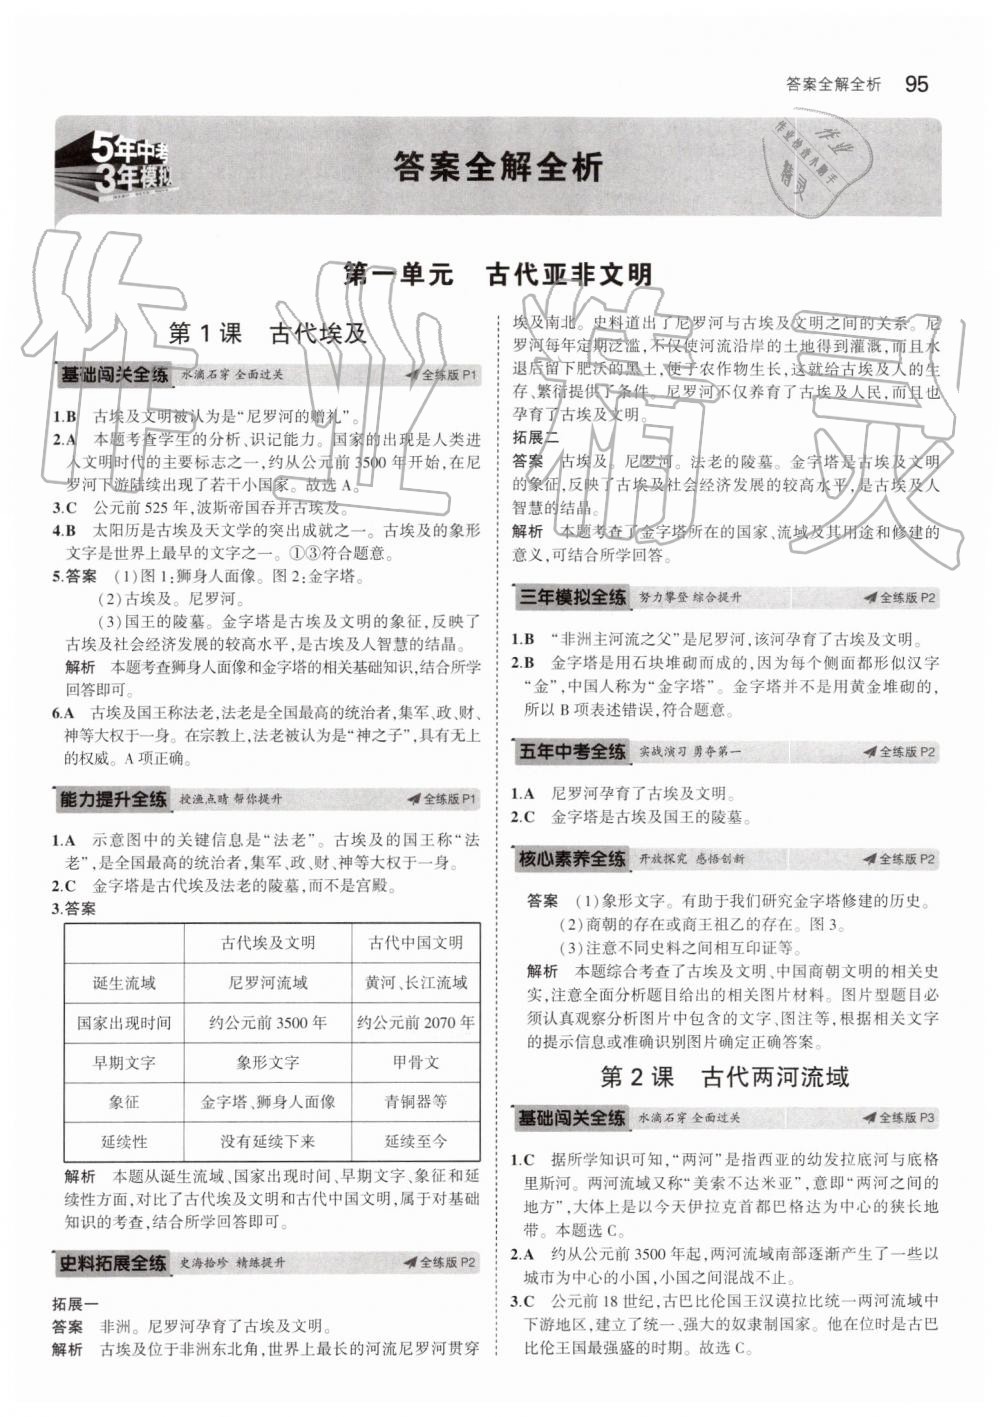 答案全解全析 95
5年中考
3年模拟
答案全解全析
第一单元 古代亚非文明
第1课 古代埃及
基础闯关全练 水滴石穿 全面过关 全练版P1
1.B 古埃及文明被认为是“尼罗河的赠礼”。
2.A 本题考查学生的分析、识记能力。国家的出现是人类进
入文明时代的主要标志之一,约从公元前3500年开始,在尼
罗河下游陆续出现了若干小国家。故选A。
3.C 公元前525年,波斯帝国吞并古埃及。
4.B 太阳历是古埃及天文学的突出成就之一。古埃及的象形
文字是世界上最早的文字之一。①③符合题意。
5.答案 (1)图1:狮身人面像。图2:金字塔。
(2)古埃及。尼罗河。
(3)国王的陵墓。金字塔是古埃及文明的象征,反映了
古埃及社会经济发展的较高水平,是古埃及人智慧的结晶。
解析 本题考查狮身人面像和金字塔的相关基础知识,结合所学
回答即可。
6.A 古埃及国王称法老,法老是全国最高的统治者,集军、政、财、
神等大权于一身。在宗教上,法老被认为是“神之子”,具有无上
的权威。A项正确。
能力提升全练 授渔点睛 帮你提升 全练版P1
1.A 示意图中的关键信息是“法老”。古埃及的国王称“法
老”,是全国最高的统治者,集军、政、财、神等大权于一身。
2.C 金字塔是古代埃及法老的陵墓,而不是宫殿。
3.答案
古代埃及文明 古代中国文明
诞生流域 尼罗河流域 黄河、长江流域
国家出现时间 约公元前3500年 约公元前2070年
早期文字 象形文字 甲骨文
象征 金字塔、狮身人面像 青铜器等
延续性 没有延续下来 延续至今
解析 本题从诞生流域、国家出现时间、早期文字、象征和延
续性方面,对比了古代埃及文明和古代中国文明,属于对基础
知识的考查,结合所学回答即可。
史料拓展全练 史海拾珍 精练提升 全练版P2
拓展一
答案 非洲。尼罗河孕育了古埃及文明。
解析 古埃及位于非洲东北角,世界上最长的河流尼罗河贯穿
埃及南北。史料道出了尼罗河与古埃及文明之间的关系。尼
罗河每年定期泛滥,不仅使河流沿岸的土地得到灌溉,而且水
退后留下肥沃的黑土,便于农作物生长,这就给古埃及人的生
存、繁衍提供了条件。尼罗河不仅养育了古埃及人民,而且也
孕育了古埃及文明。
拓展二
答案 古埃及。尼罗河。法老的陵墓。金字塔是古埃及文明
的象征,反映了古埃及社会经济发展的较高水平,是古埃及人
智慧的结晶。
解析 本题考查了金字塔所在的国家、流域及其用途和修建的
意义,可结合所学回答。
三年模拟全练 努力攀登 综合提升 全练版P2
1.B “非洲主河流之父”是尼罗河,该河孕育了古埃及文明。
2.B 金字塔是用石块堆砌而成的,因为每个侧面都形似汉字
“金”,中国人称为“金字塔”。金字塔并不是用黄金堆砌的,
所以B项表述错误,符合题意。
五年中考全练 实战演习 勇夺第一 全练版P2
1.A 尼罗河孕育了古埃及文明。
2.C 金字塔是古埃及国王的陵墓。
核心素养全练 开放探究 感悟创新 全练版P2
答案 (1)象形文字。有助于我们研究金字塔修建的历史。
(2)商朝的存在或商王祖乙的存在。图3。
(3)注意不同史料之间相互印证等。
解析 本题综合考查了古埃及文明、中国商朝文明的相关史
实,注意全面分析题目给出的相关图片材料。图片型题目必
须认真观察分析图片中包含的文字、图注等,根据相关文字
的提示信息或准确识别图片确定正确答案。
第2课 古代两河流域
基础闯关全练 水滴石穿 全面过关 全练版P3
1.C 据所学知识可知,“两河”是指西亚的幼发拉底河与底格
里斯河。两河流域又称“美索不达米亚”,意即“两河之间的
地方”,大体上是以今天伊拉克首都巴格达为中心的狭长地
带。本题选C。
2.A 约从公元前3500年起,两河流域南部逐渐产生了一些以
城市为中心的小国,小国之间混战不止。
3.C 公元前18世纪,古巴比伦国王汉谟拉比统一两河流域中
下游地区,建立了统一、强大的奴隶制国家。他在位时是古巴
比伦王国最强盛的时期。故选C。
作业精灵
作业
作业检查小助手
精灵